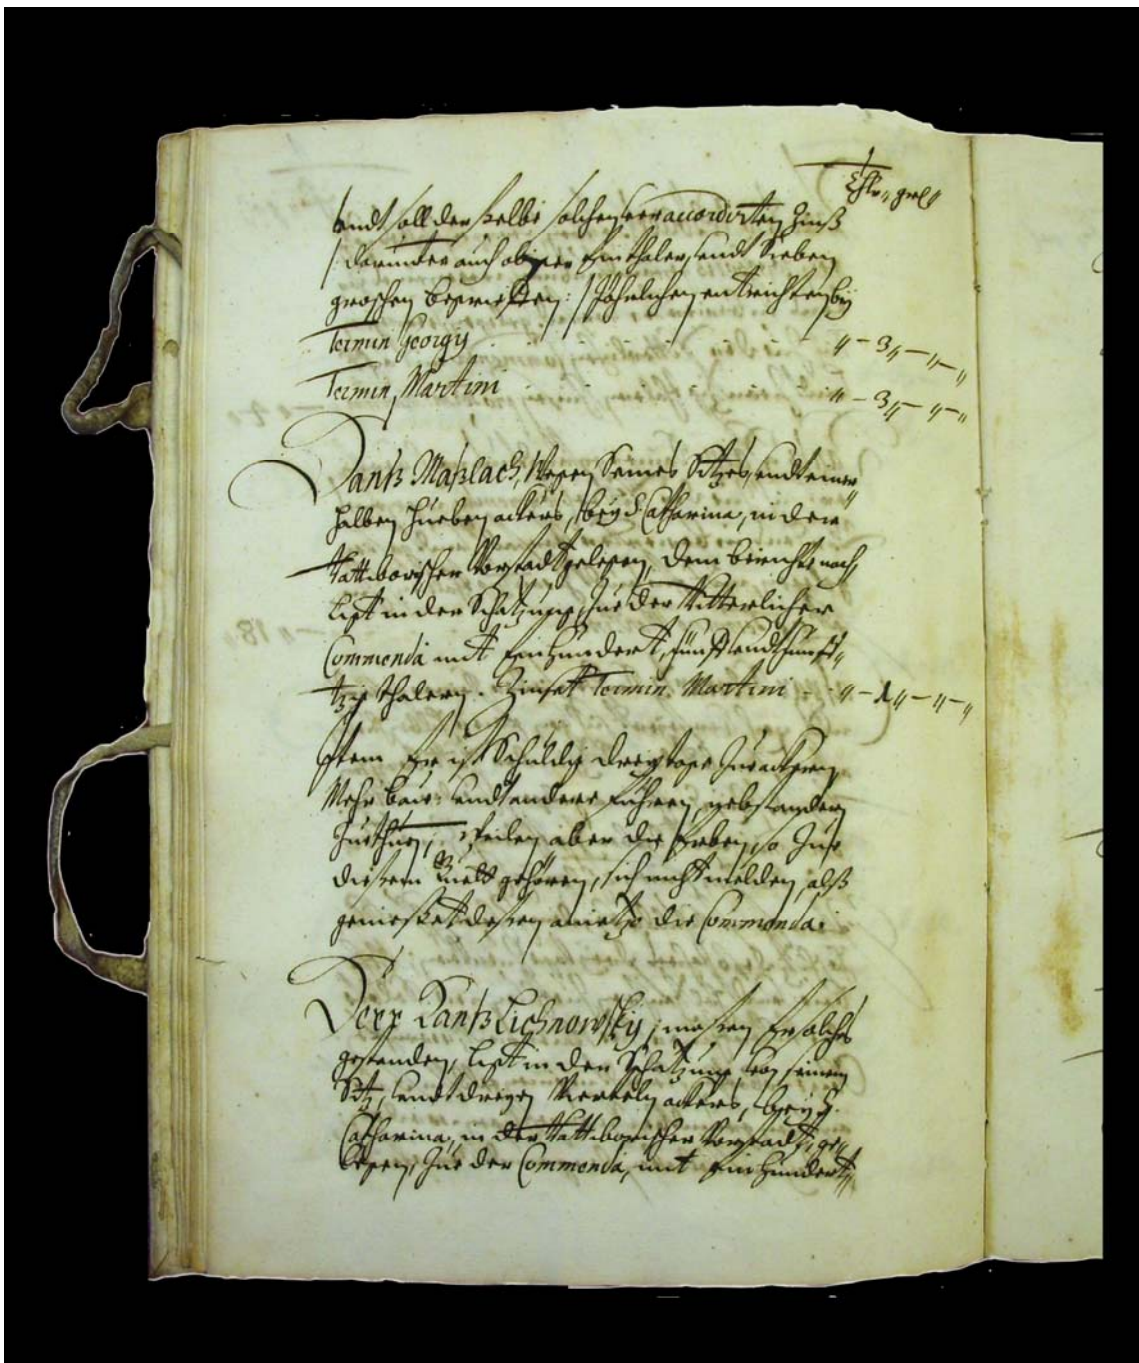 Thlr„ grl„
undt soll derselbe solchen veraccordirten Zinß
/: darunter auch obiger Ein thaler, undt Sieben
groschen begrieffen :/ Jährlichen entrichten bey
Termin Georgÿ „ – 3„ – „ – „
Termin Martini „ – 3„ – „ – „
Hanß Maßlach, Wegen Seines Sitzes, undt einer
halben Hueben ackers, beÿ S. Catharina, in der
Rattiborischen Vorstadt gelegen, dem berichte nach
Ligt in der Schatzung, zue der Ritterlicher
Commenda mit Einhundert, fünff undt funff„
tzig thalern. Zinset Termin Martini „ – 1„ – „ – „
Item Er ist Schuldig dreÿ tage zue ackern
Mehr bau: undt andere fuhren, nebst andern
zuethuen, Weilen aber die Erben, so zue
diesem gehören, sich nicht melden, alß
genießet dessen anietzo die Commenda.
Herr Hanß Lichnowskÿ, massen Er solches
gestanden, Ligt in der Schatzung von seinem
Sitz, undt dreÿen Vierteln ackers, beÿ S.
Catharina, in der Rattiborischer Vorstadt, ge„
legen, zue der Commenda, mit Einhundert,